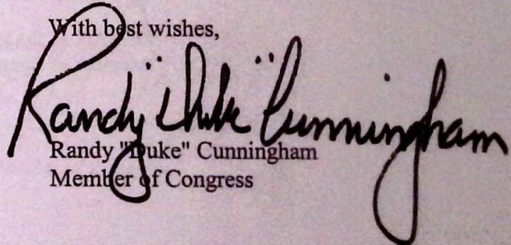 With best wishes,
Randy "Duke" Cunningham
Randy "Duke" Cunningham
Member of Congress